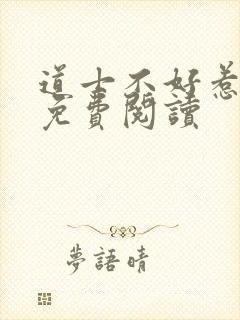 道士不好惹
免費閱讀
夢語晴